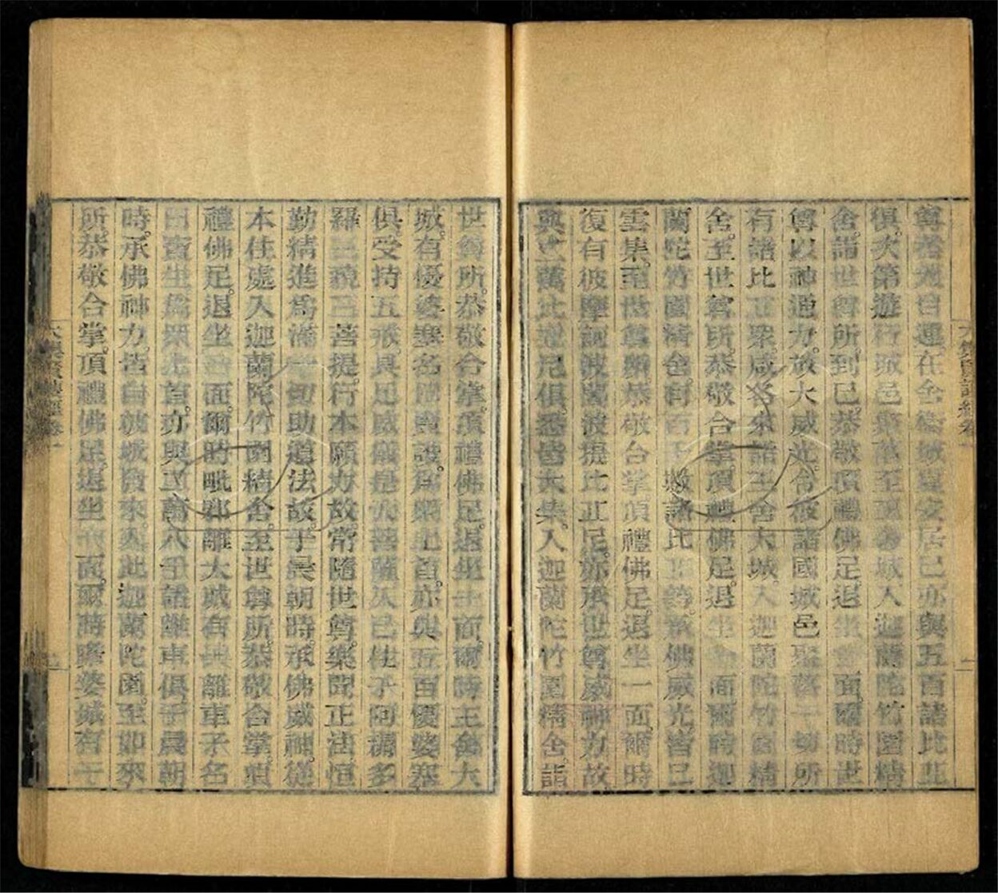 尊者大目連在舍衞城夏安居已亦與五百諸比丘
俱次第遊行城邑聚落至王舍城入迦蘭陀竹園精
舍詣世尊所到已恭敬頂禮佛足退坐一面爾時世
尊以神通力放大威光令彼諸國城邑聚落一切所
有諸比丘眾咸各來詣王舍大城入迦蘭陀竹園精
舍至世尊所恭敬合掌頂禮佛足退坐一面爾時迦
蘭陀竹園精舍有百千數諸比丘等承佛威光皆已
雲集至世尊所恭敬合掌頂禮佛足退坐一面爾時
復有彼摩訶波闍波提比丘尼亦承世尊威神力故
與立萬比丘尼俱悉皆大集入迦蘭陀竹園精舍詣
世尊所恭敬合掌頂禮佛足退坐一面爾時王舍大
城有優婆塞名賢護為眾上首亦與五百優婆塞
俱受持五戒具足威儀是大菩薩久已住於阿耨多
羅三藐三菩提行本願力故常隨世尊樂聞正法恒
勤精進為滿一切助道法故于晨朝時承佛威神從
本住處入迦蘭陀竹園精舍至世尊所恭敬合掌頂
禮佛足退坐一面爾時毗耶離大城有離車子名
曰寶生為眾上首亦與立萬八千諸離車俱于晨朝
時承佛神力皆自彼城發來入此迦蘭陀園至如來
所恭敬合掌頂禮佛足退坐一面爾時瞻婆城有子